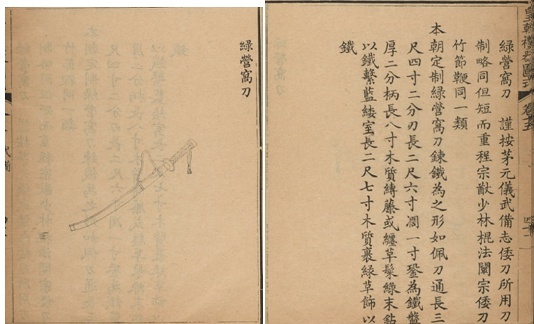 皇朝禮器圖式 卷十五
綠營窩刀 謹按茅元儀武備志倭刀所用刀
制略同但短而重程宗猷少林棍法闡宗倭刀
竹節鞭同一類
本朝定制綠營窩刀鍊鐵為之形如佩刀通長三
尺四寸二分刃長二尺六寸濶一寸銎為鐵盤
厚二分柄長八寸木質縛藤或纏革髹綠末鈷
以鐵繫藍緌室長二尺七寸木質裹綠革飾以
鐵
綠營窩刀